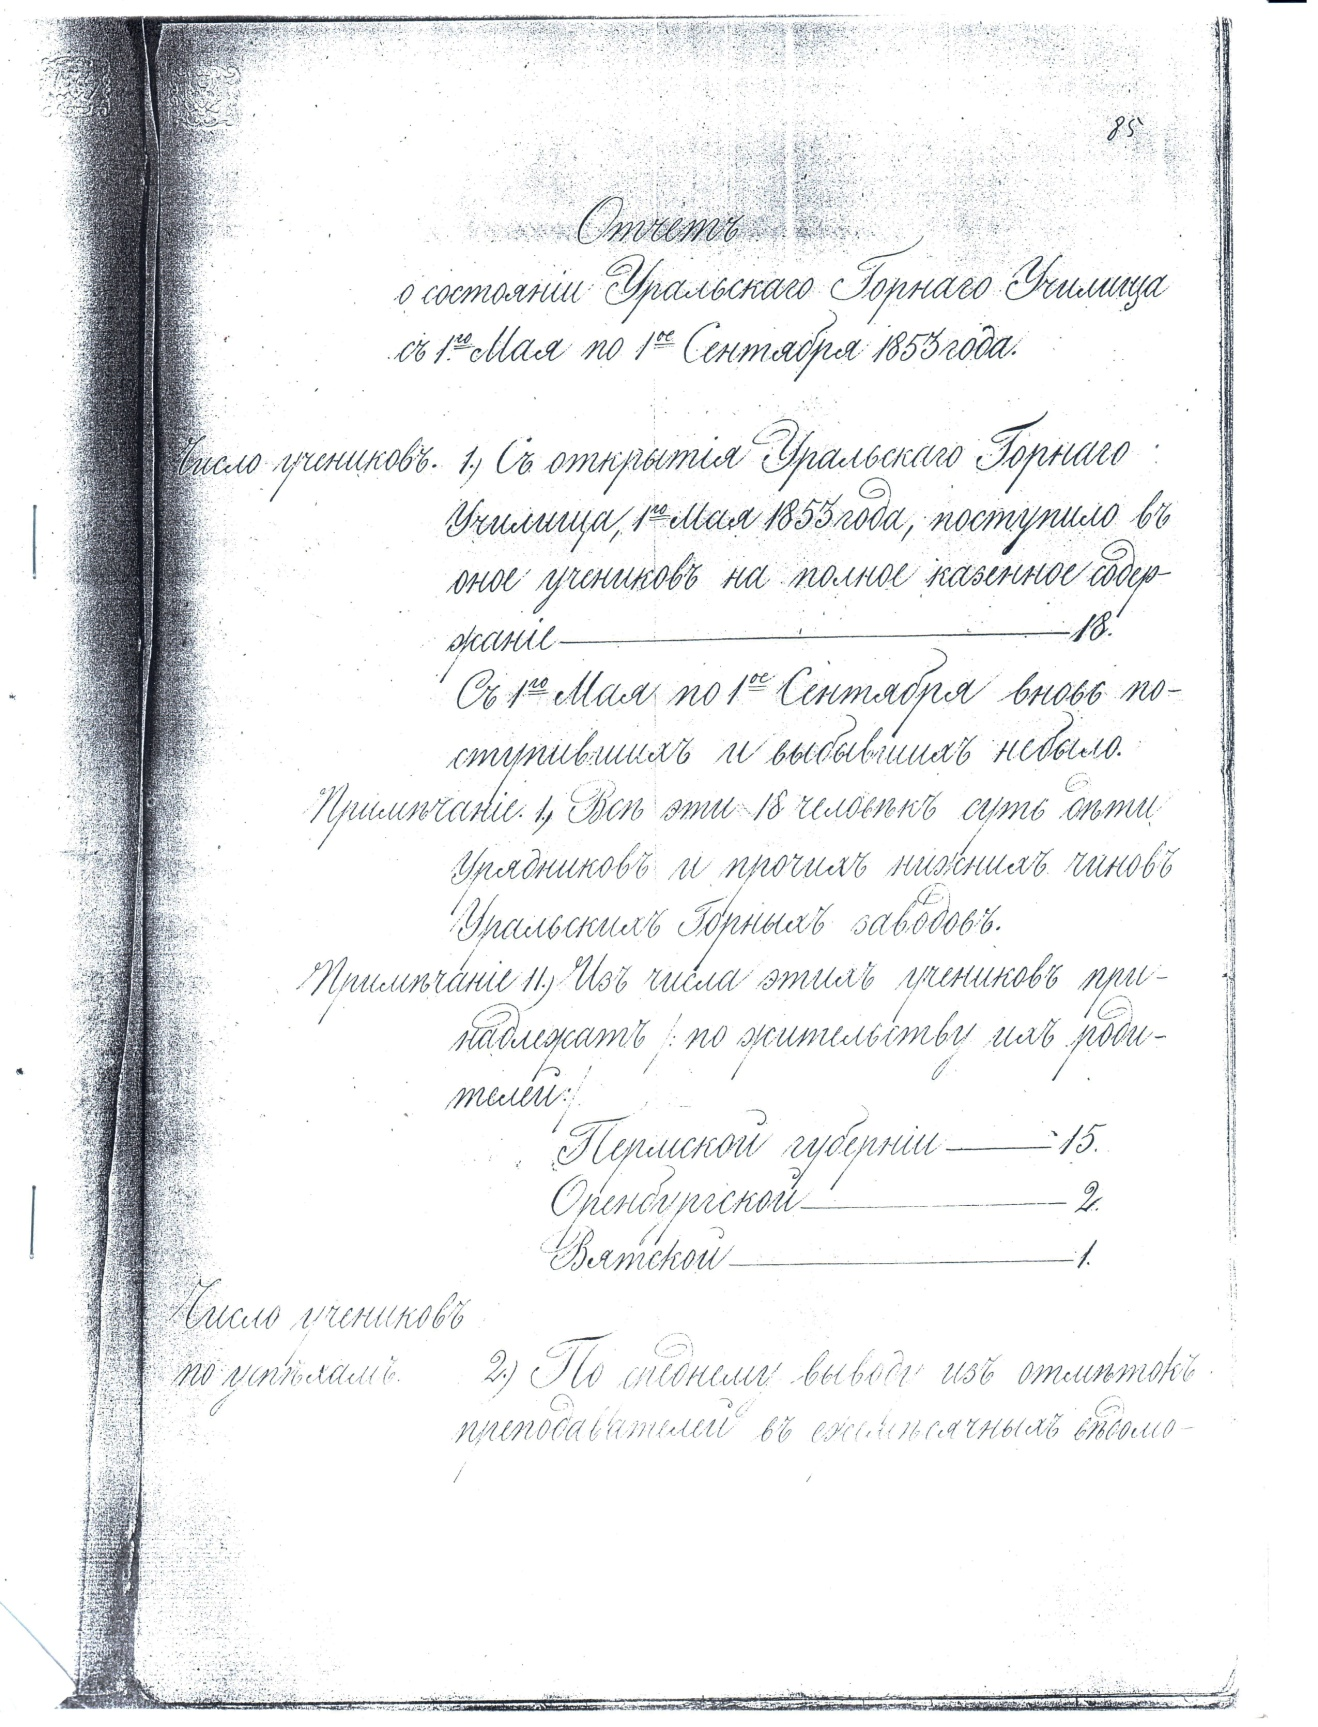 85
Отчетъ
о состоянiи Уральскаго Горнаго Училища
съ 1го Мая по 1ое Сентября 1853 года.
Число учениковъ. 1.) Съ открытiя Уральскаго Горнаго
Училища, 1го Мая 1853 года, поступило въ
оное учениковъ на полное казенное содер-
жанiе — 18.
Съ 1го Мая по 1ое Сентября вновь по-
ступившихъ и выбывшихъ небыло.
Примѣчанiе. 1.) Всѣ эти 18 человѣкъ суть дѣти
Урядниковъ и прочихъ нижнихъ чиновъ
Уральскихъ Горныхъ заводовъ.
Примѣчанiе 11.) Изъ числа этихъ учениковъ при-
надлежатъ /: по жительству ихъ роди-
телей:/
Пермской губернiи — 15.
Оренбургской — 2.
Вятской — 1.
Число учениковъ
по успѣхамъ. 2.) По среднему выводу изъ отмѣтокъ
преподавателей въ ежемѣсячныхъ вѣдомо-